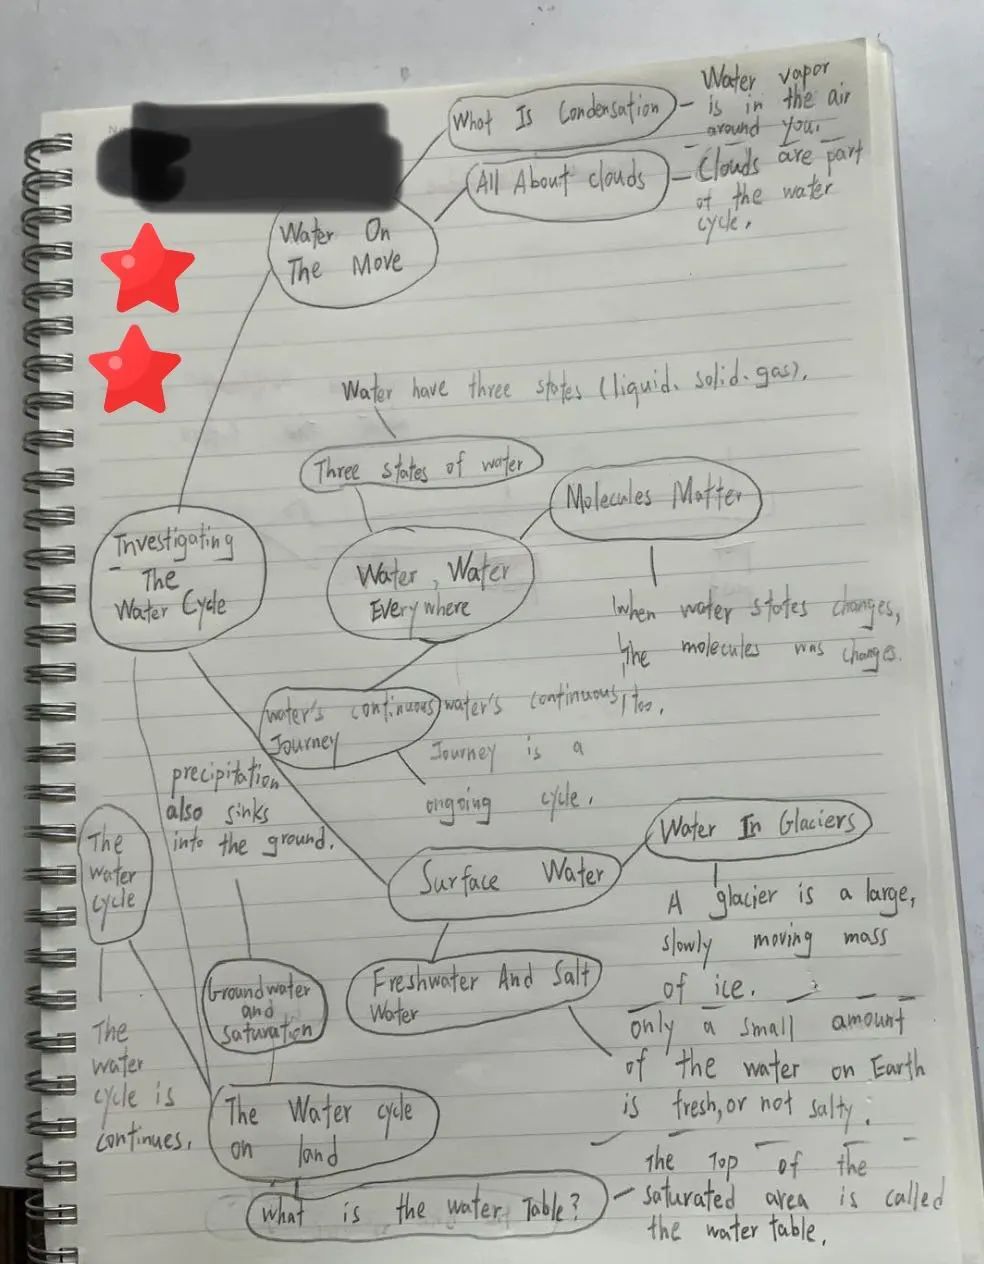 What Is Condensation
Water vapor
is in the air
around you.
All About clouds
Clouds are part
of the water
cycle.
Water On
The Move
Water have three states (liquid、solid、gas).
Three states of water
Molecules Matter
Investigating
The
Water Cycle
Water, Water
Everywhere
When water states changes,
the molecules was changes.
water's continuous
Journey
water's continuous, too.
Journey is a
ongoing cycle.
precipitation
also sinks
into the ground.
The
water
cycle
Water In Glaciers
Surface Water
A glacier is a large,
slowly moving mass
of ice.
Groundwater
and
saturation
Freshwater And Salt
Water
only a small amount
of the water on Earth
is fresh, or not salty.
The
water
cycle is
continues.
The Water cycle
on land
What is the water Table?
The Top of the
saturated area is called
the water table.